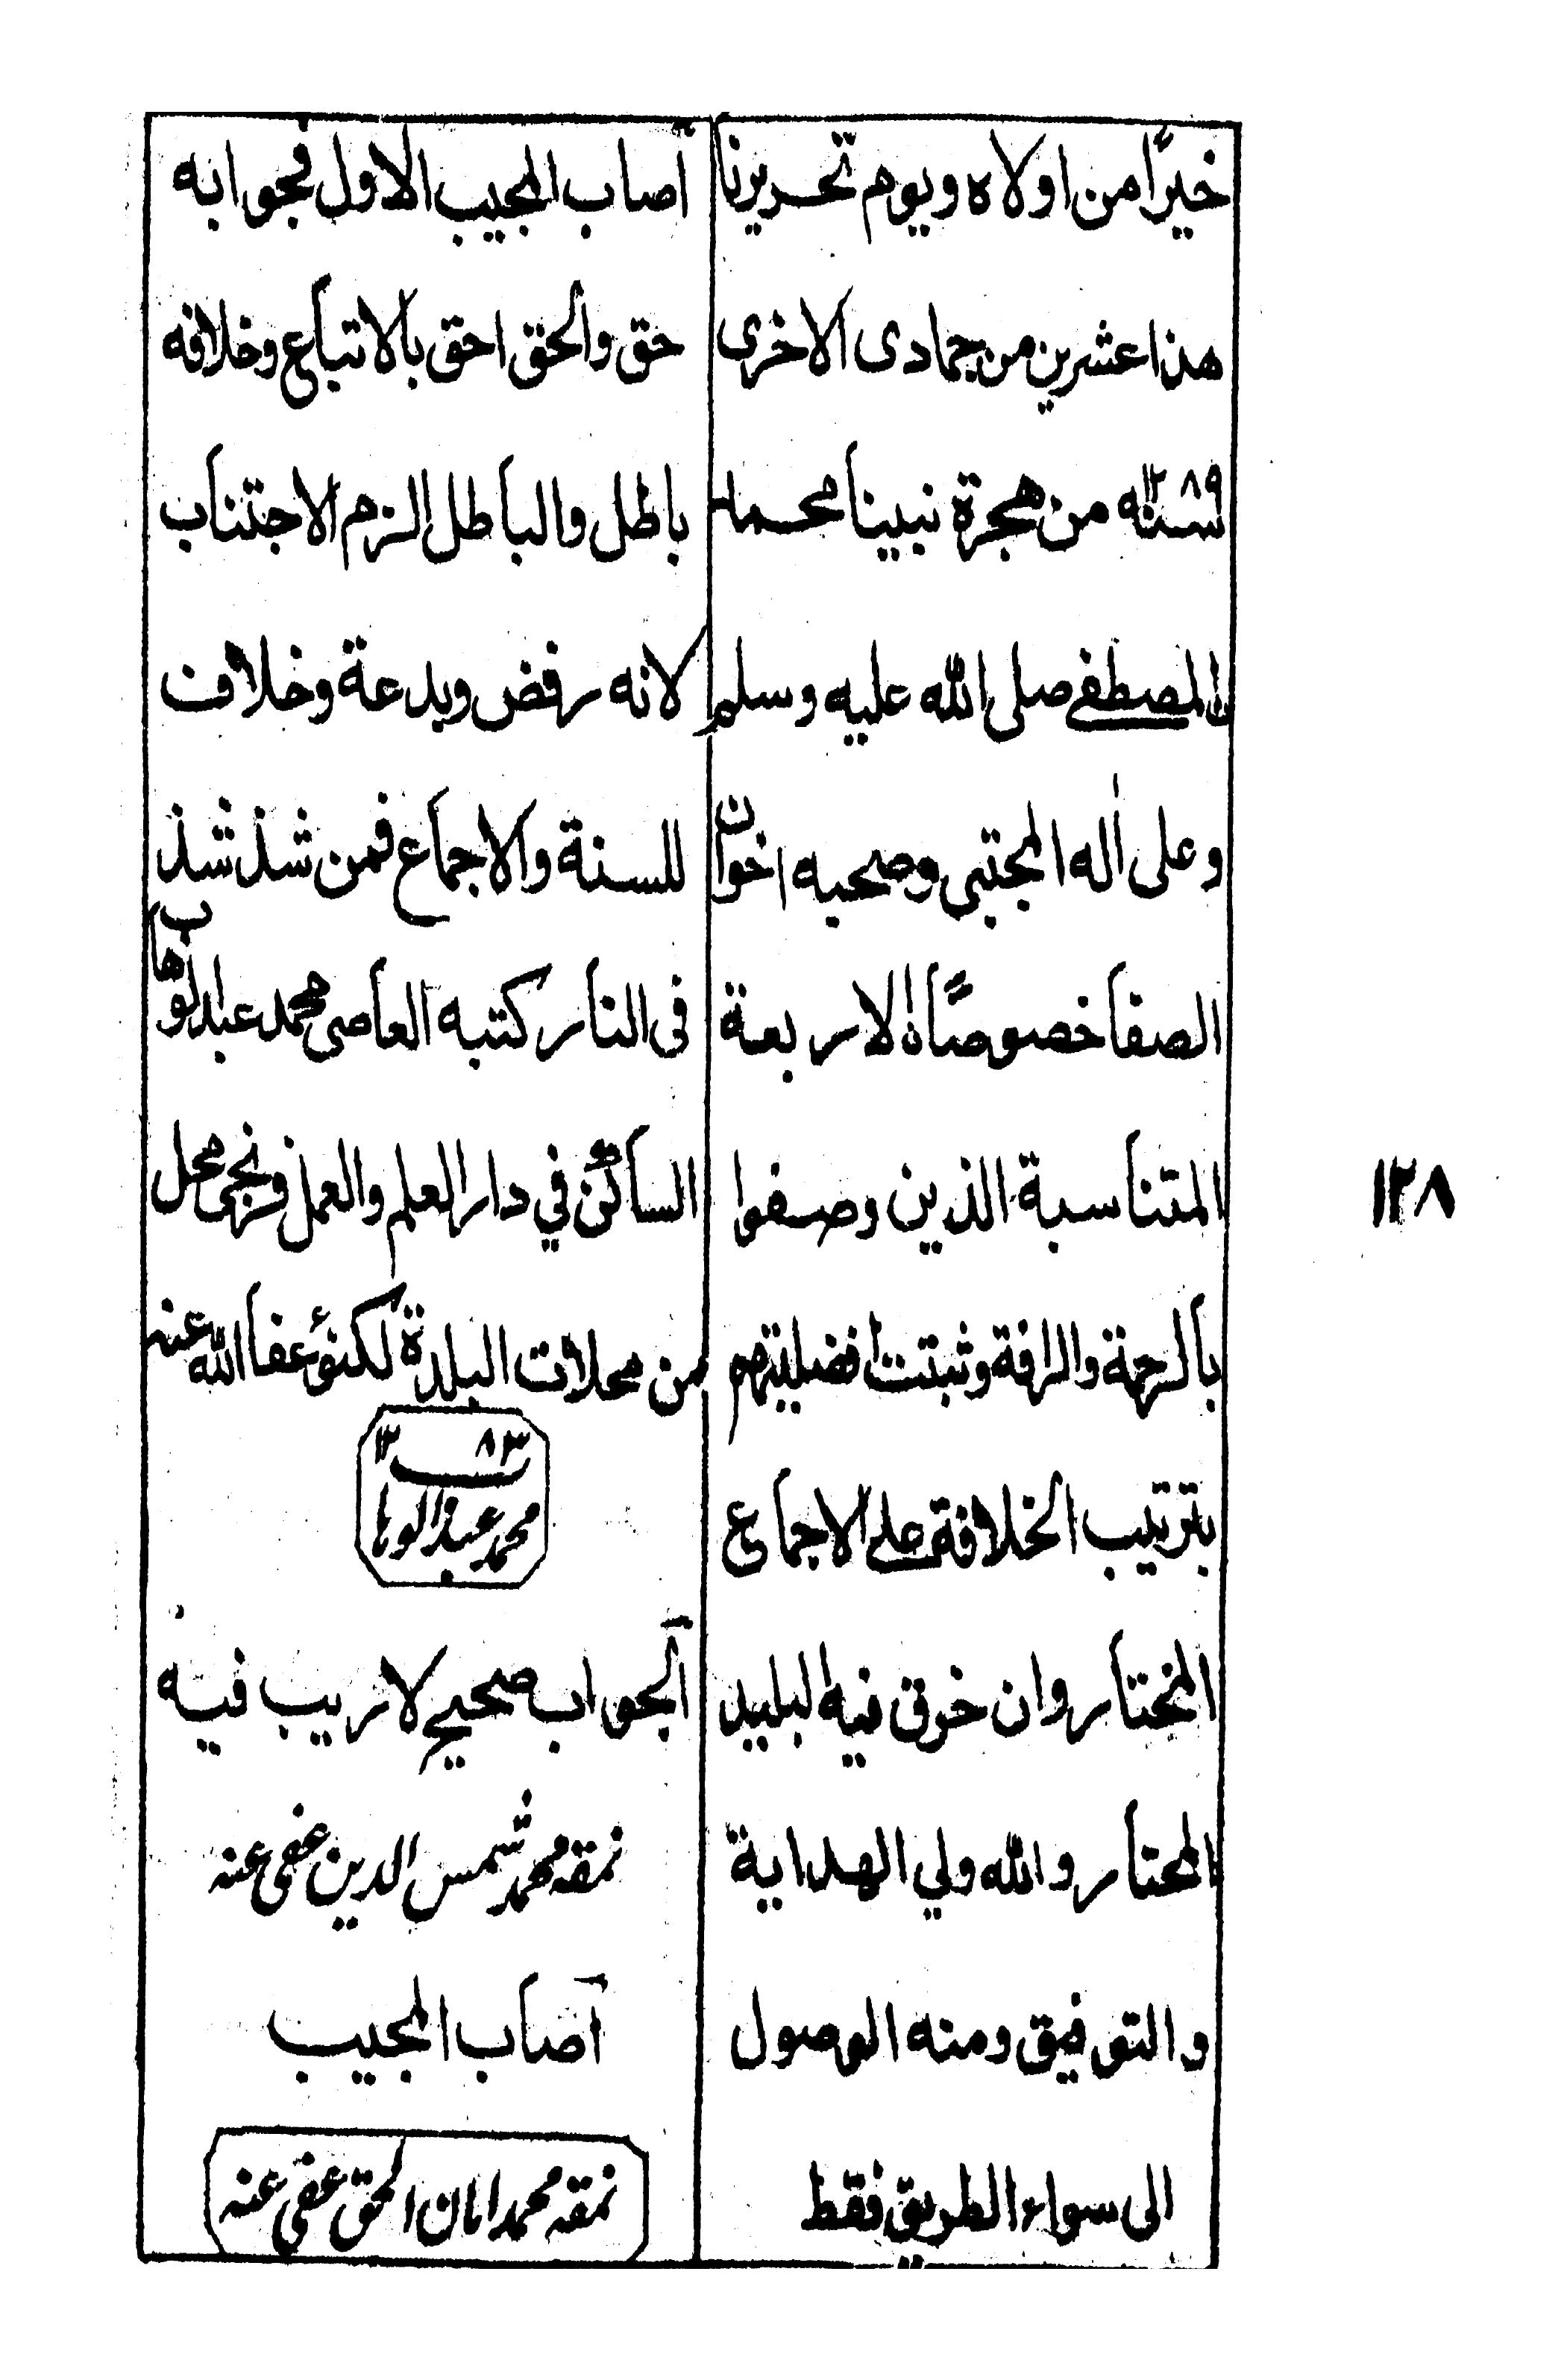 خيرًا من اولاه ويوم تحريرنا
هذا عشرين من جمادى الاخرى
سنه ١٢٨٩ من هجرة نبينا محمد
ن المصطفے صلى الله عليه وسلم
وعلى اٰله المجتبى وصحبه اخوان
الصفا خصوصًا الاربعة
المتناسبة الذين وصفوا
بالرحمة والرافة وثبتت افضليتهم
بترتيب الخلافة علے الاجماع
المختار وان خرق فيه البليد
المحتار والله ولي الهداية
والتوفيق ومنه الوصول
الى سواء الطريق فقط
اصاب المجيب الاول فجوابه
حق والحق احق بالاتباع وخلافه
باطل والباطل الزم الاجتناب
لانه رفض وبدعة وخلاف
للسنة والاجماع فمن شذ شذ
فى النار كتبه العاصى محمد عبد الوهاب
الساكن في دار العلم والعمل فرنجى محل
من محلات البلدة لكنؤ عفا الله عنه
١٢٨٣
محمد عبد الوهاب
الجواب صحيح لا ريب فيه
نمقه محمد شمس الدين عفى عنه
اصاب المجيب
نمقه محمد امان الحق عفى عنه
١٢٨